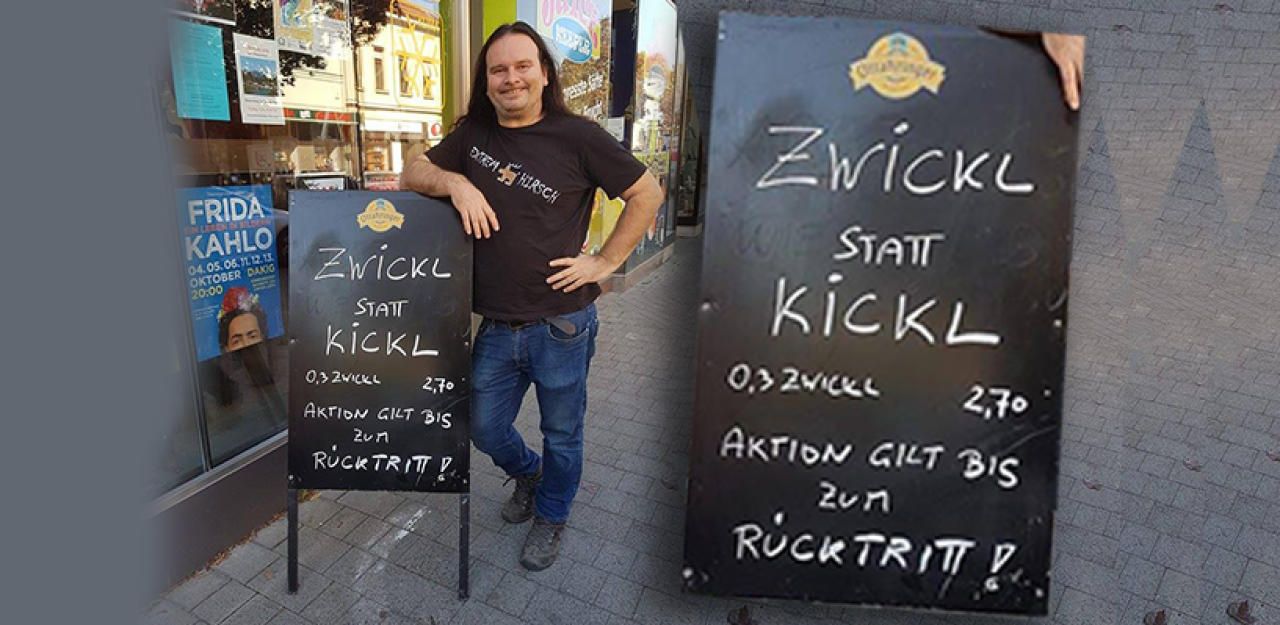 FRIDA
EIN LEBEN IN BILDERN
KAHLO
04.05.06.11.12.13.
OKTOBER DAKIG
20:00
EXTREM HIRSCH
Ottakringer
ZWICKL
STATT
KICKL
0,3 ZWICKL 2,70
AKTION GILT BIS
ZUM
RÜCKTRITT!
Ottakringer
ZWICKL
STATT
KICKL
0,3 ZWICKL 2,70
AKTION GILT BIS
ZUM
RÜCKTRITT!